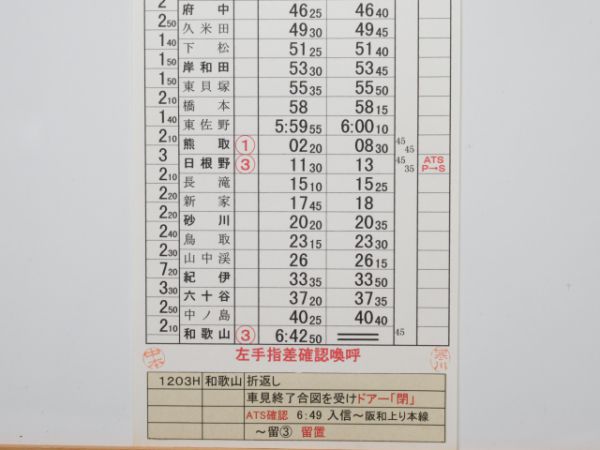 2 府中 46 25 46 40
2 50 久米田 49 30 49 45
1 50 下松 51 25 51 40
1 50 岸和田 53 30 53 45
1 50 東貝塚 55 35 55 50
2 10 橋本 58 58 15
1 40 東佐野 5:59 55 6:00 10
2 10 熊取 ① 02 20 08 30 45 45
3 日根野 ③ 11 30 13 45 35 ATS P→S
2 10 長滝 15 10 15 25
2 20 新家 17 45 18
2 20 砂川 20 20 20 35
2 40 鳥取 23 15 23 30
2 20 山中渓 26 26 15
7 20 紀伊 33 35 33 50
3 30 六十谷 37 20 37 35
2 50 中ノ島 40 25 40 40
2 10 和歌山 ③ 6:42 50 45
左手指差確認喚呼
1203H 和歌山 折返し
車見終了合図を受けドアー「閉」
ATS確認 6:49 入信～阪和上り本線
～留③ 留置